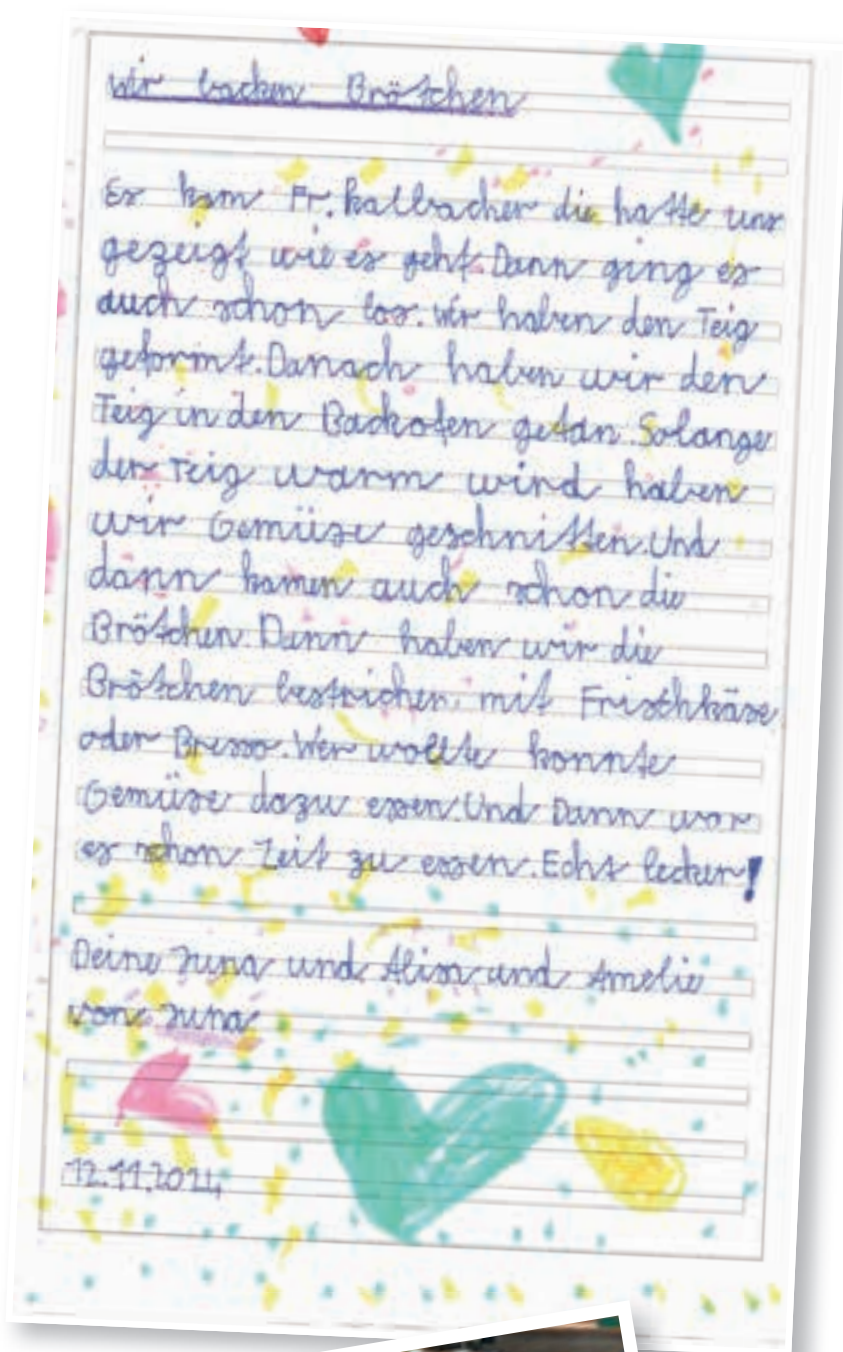 wir backen Brötchen
Es kam Fr. Kallbacher die hatte uns
gezeigt wie es geht. Dann ging es
auch schon los. Wir haben den Teig
geformt. Danach haben wir den
Teig in den Backofen getan. Solange
der Teig warm wird haben
wir Gemüse geschnitten. Und
dann kamen auch schon die
Brötchen. Dann haben wir die
Brötchen bestrichen, mit Frischkäse
oder Bresso. Wer wollte konnte
Gemüse dazu essen. Und Dann war
es schon Zeit zu essen. Echt lecker!
Deine und Alisa und Amelie
von
12.11.2024